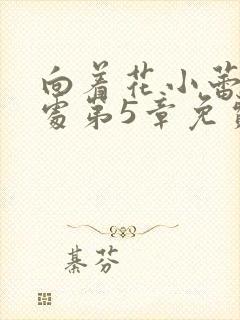 向着花小蕾
处第5章免
綦芬